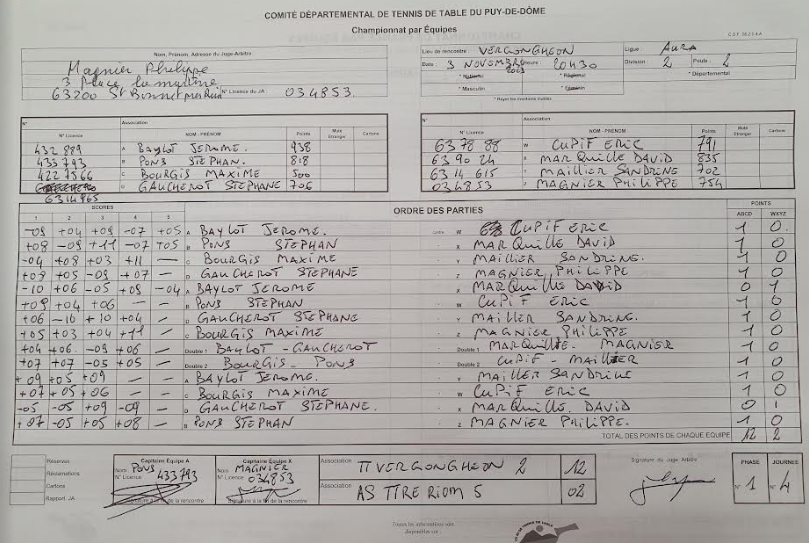 COMITÉ DÉPARTEMENTAL DE TENNIS DE TABLE DU PUY-DE-DÔME
Championnat par Équipes
Nom, Prénom, Adresse du Juge-Arbitre
Magnier Philippe
3 Place du
63200 St Bonnet près Riom N° Licence du JA 034853
Lieu de rencontre : VERGONGHEON Ligue : AURA
Date : 3 NOVEMBRE 2023 Heure 20H30 Division : 2 Poule : 2
* National * Régional * Départemental
* Masculin * Féminin
* Rayer les mentions inutiles
N° Association
N° Licence NOM - PRÉNOM Points Muté Etranger Cartons
432889 A BAYLOT JEROME. 938
433793 B PONS STEPHAN. 818
4227566 C BOURGIS MAXIME 500
6314965 D GAUCHEROT STEPHANE 706
N° Association
N° Licence NOM - PRENOM Points Muté Etranger Cartons
637888 W CUPIF ERIC 791
639024 X MARQUILLE DAVID 835
6314615 Y MAILLIER SANDRINE 702
034853 Z MAGNIER PHILIPPE 754
SCORES ORDRE DES PARTIES POINTS
1 2 3 4 5 ABCD WXYZ
-09 +04 +09 -07 +05 A BAYLOT JEROME. contre W CUPIF ERIC 1 0
+08 -09 +11 -07 +05 B PONS STEPHAN - X MARQUILLE DAVID 1 0
-04 +08 +03 +11 — C BOURGIS MAXIME - Y MAILLIER SANDRINE. 1 0
+08 +05 -09 +07 — D GAUCHEROT STEPHANE - Z MAGNIER PHILIPPE 1 0
-10 +06 -05 +09 -04 A BAYLOT JEROME - X MARQUILLE DAVID 0 1
+09 +04 +06 — — B PONS STEPHAN - W CUPIF ERIC 1 0
+06 -10 +10 +04 — D GAUCHEROT STEPHANE - Y MAILLER SANDRINE. 1 0
+05 +03 +04 +11 — C BOURGIS MAXIME - Z MAGNIER PHILIPPE 1 0
+04 +06 -09 +06 — Double 1 BAYLOT - GAUCHEROT Double 1 MARQUILLE - MAGNIER 1 0
+07 +07 -05 +05 — Double 2 BOURGIS - PONS Double 2 CUPIF - MAILLIER 1 0
+09 +05 +09 — — A BAYLOT JEROME. - Y MAILLER SANDRINE 1 0
+07 +05 +06 — — C BOURGIS MAXIME - W CUPIF ERIC 1 0
-05 -05 +09 -09 — D GAUCHEROT STEPHANE. - X MARQUILLE DAVID 0 1
+07 -05 +05 +08 — B PONS STEPHAN - Z MAGNIER PHILIPPE. 1 0
TOTAL DES POINTS DE CHAQUE EQUIPE 12 2
Réserves
Réclamations
Cartons
Rapport JA
Capitaine Equipe A
Nom PONS
N° Licence 433793
Signature à la fin de la rencontre
Capitaine Equipe X
Nom MAGNIER
N° Licence 034853
Signature à la fin de la rencontre
Association TT VERGONGHEON 2 12
Association AS TTRE RIOM 5 02
Signature du Juge Arbitre
PHASE N° 1
JOURNÉE N° 4